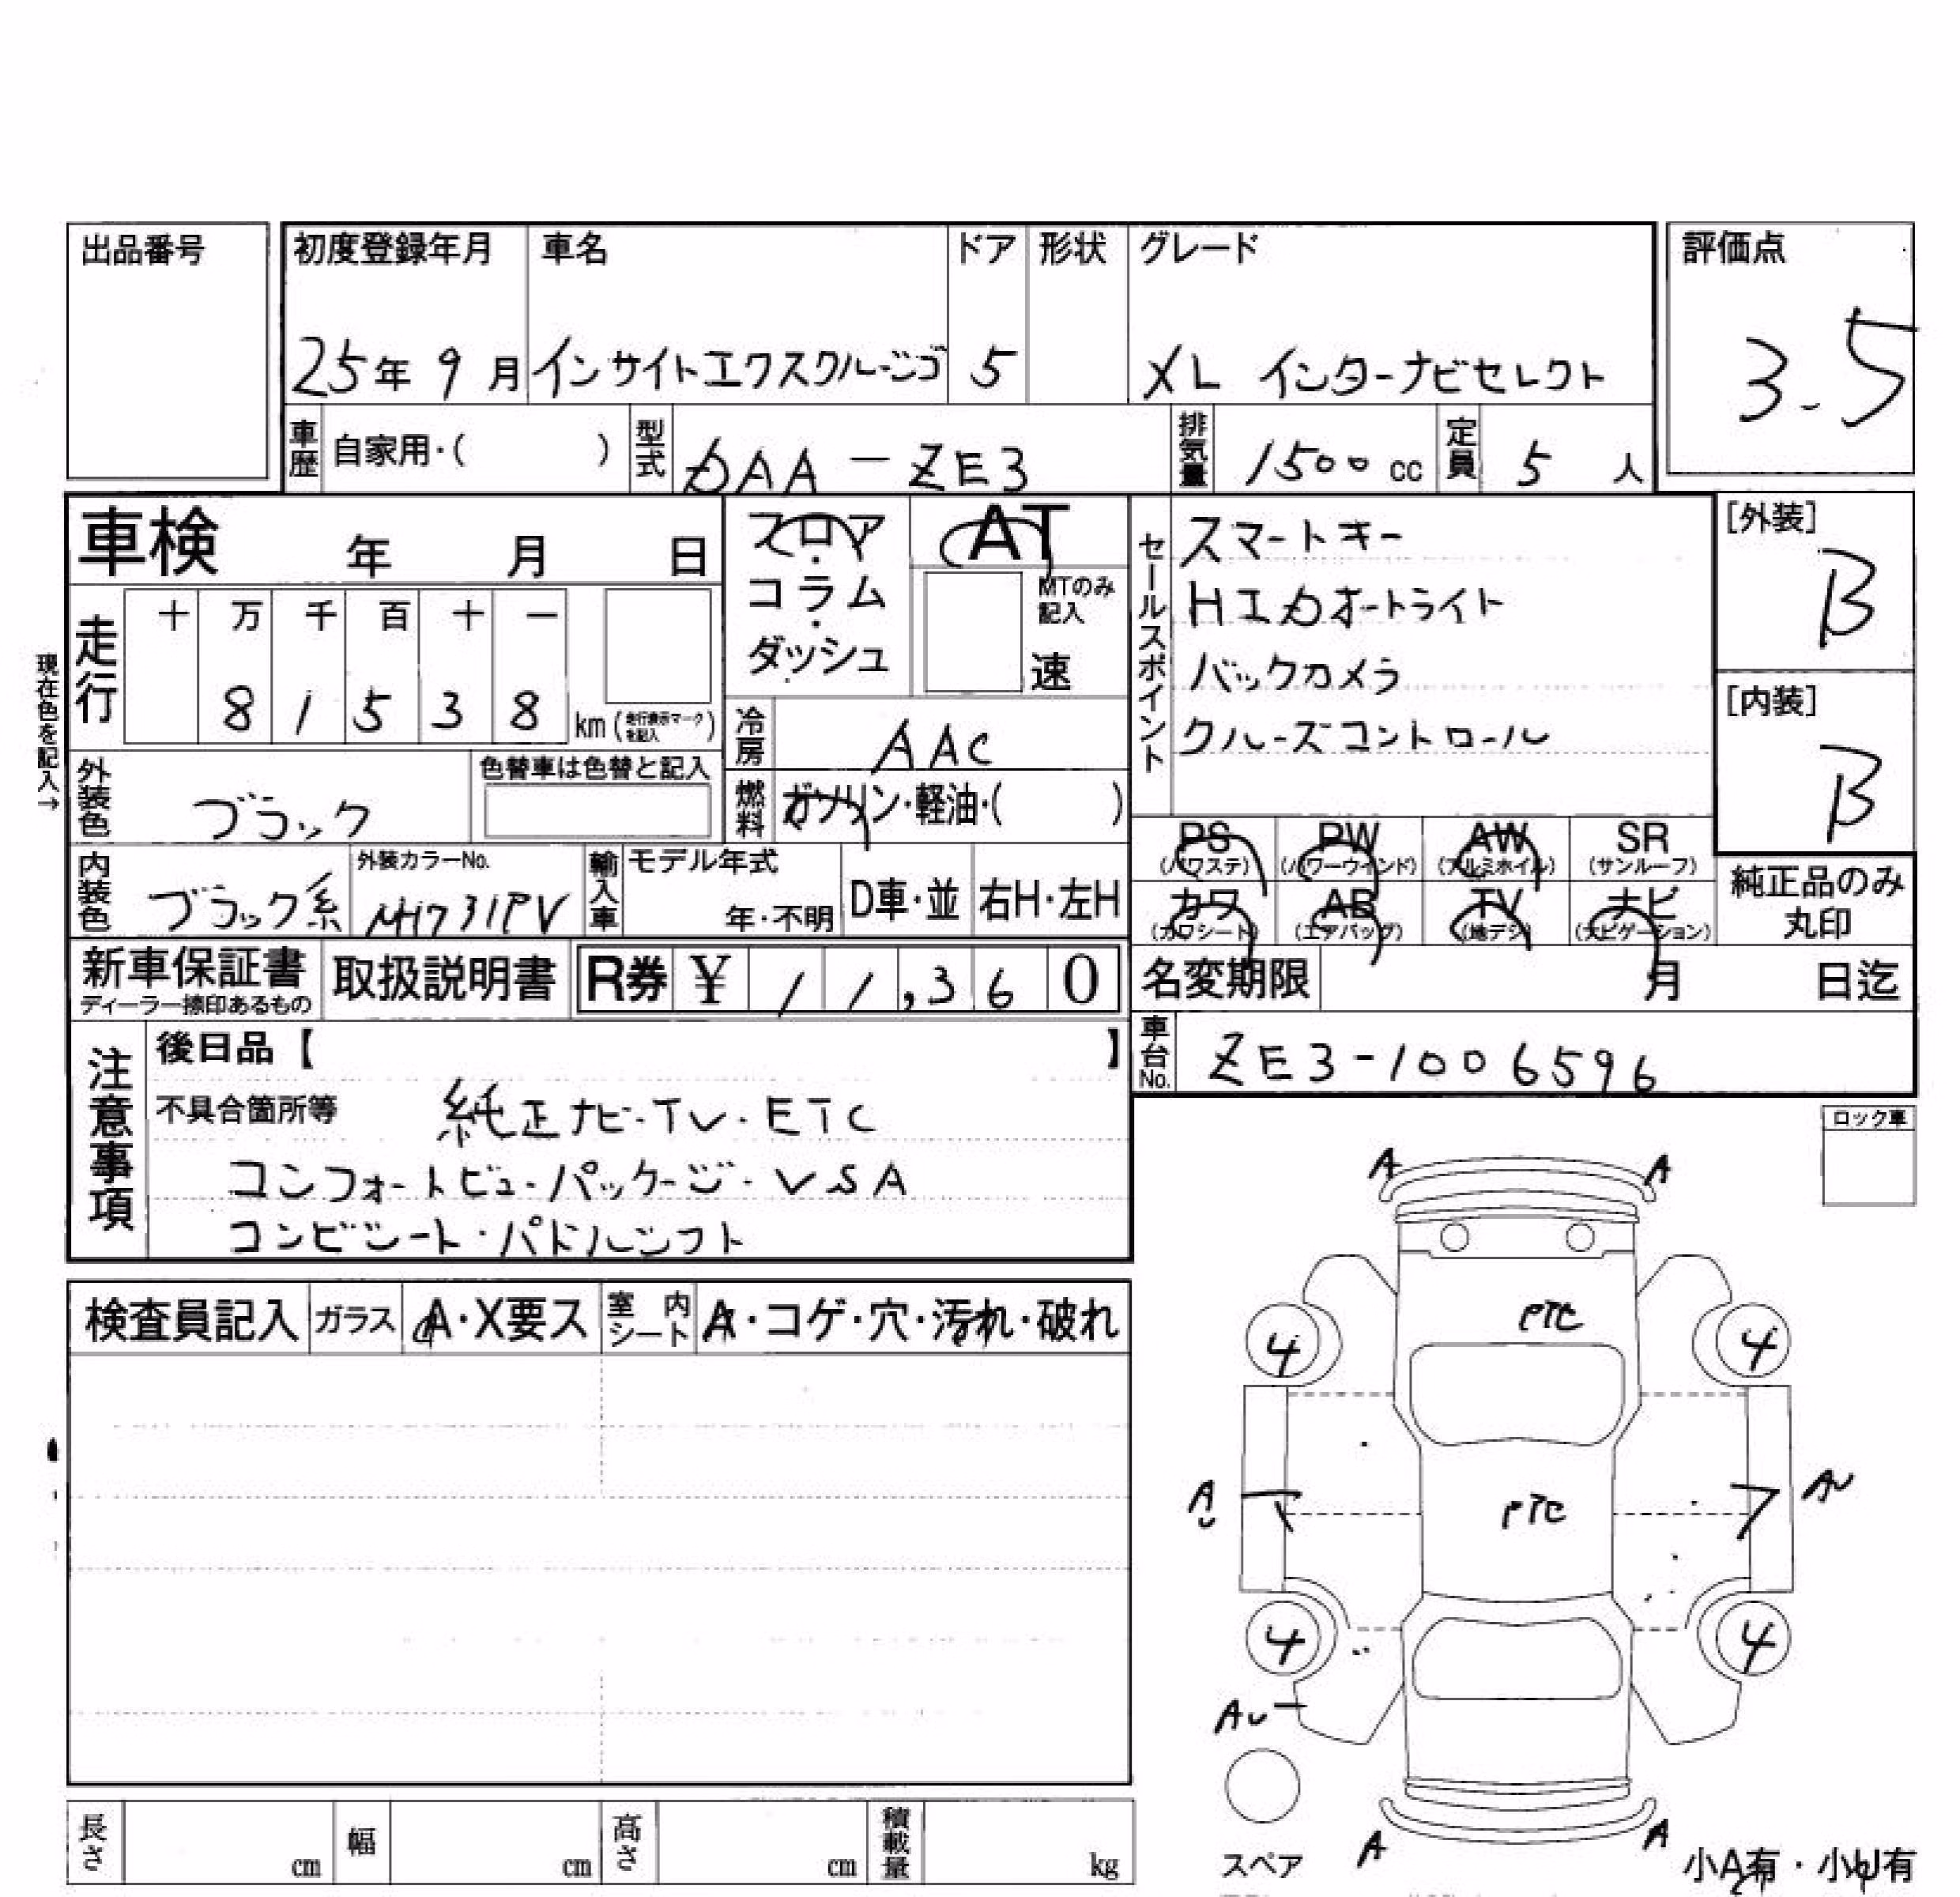 出品番号
初度登録年月 車名 ドア 形状 グレード 評価点
25年 9月 インサイトエクスクルーシブ 5 XL インターナビセレクト 3.5
車歴 自家用・( ) 型式 DAA-ZE3 排気量 1500cc 定員 5人
車検 年 月 日
フロア・コラム・ダッシュ
AT
MTのみ記入
速
セールスポイント
スマートキー
HIDオートライト
バックカメラ
クルーズコントロール
[外装]
B
[内装]
B
現在色を記入→
走行 十 万 千 百 十 一
8 1 5 3 8 km (走行表示マークを記入)
冷房 AAC
外装色 ブラック 色替車は色替と記入
燃料 ガソリン・軽油・( )
PS (パワステ) PW (パワーウィンド) AW (アルミホイル) SR (サンルーフ)
カワ (カワシート) AB (エアバッグ) TV (地デジ) ナビ (ナビゲーション)
純正品のみ丸印
内装色 ブラック系 外装カラーNo. NH731PV 輸入車 モデル年式 年・不明 D車・並 右H・左H
新車保証書 ディーラー捺印あるもの 取扱説明書 R券 ¥ 11,360
名変期限 月 日迄
車台No. ZE3-1006596
注意事項
後日品【 】
不具合箇所等 純正ナビ・TV・ETC
コンフォートビューパッケージ・VSA
コンビシート・パドルシフト
ロック車
検査員記入 ガラス A・X要ス 室内シート A・コゲ・穴・汚れ・破れ
A A
PTC
4 4
A AU
PTC
4 4
AU
スペア
A A
小A有・小U有
長さ cm 幅 cm 高さ cm 積載量 kg